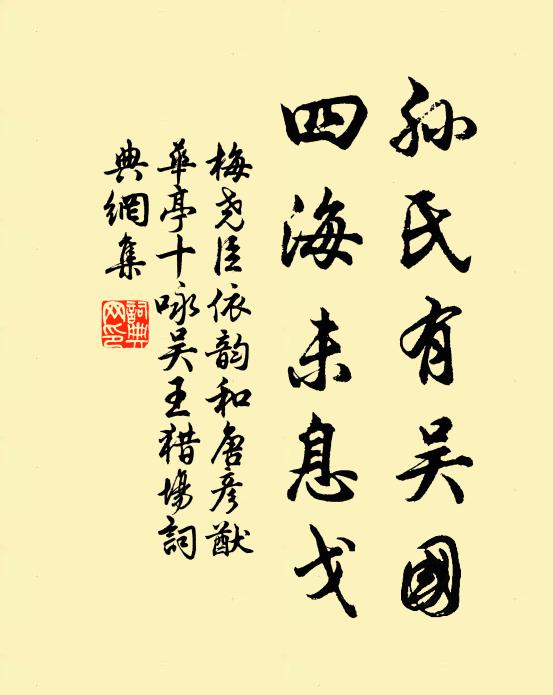 孙氏有吴國
四海未息戈
梅尧臣依韵和唐彦猷
华亭十咏吴王猎場詞
典網集
詞典
网印